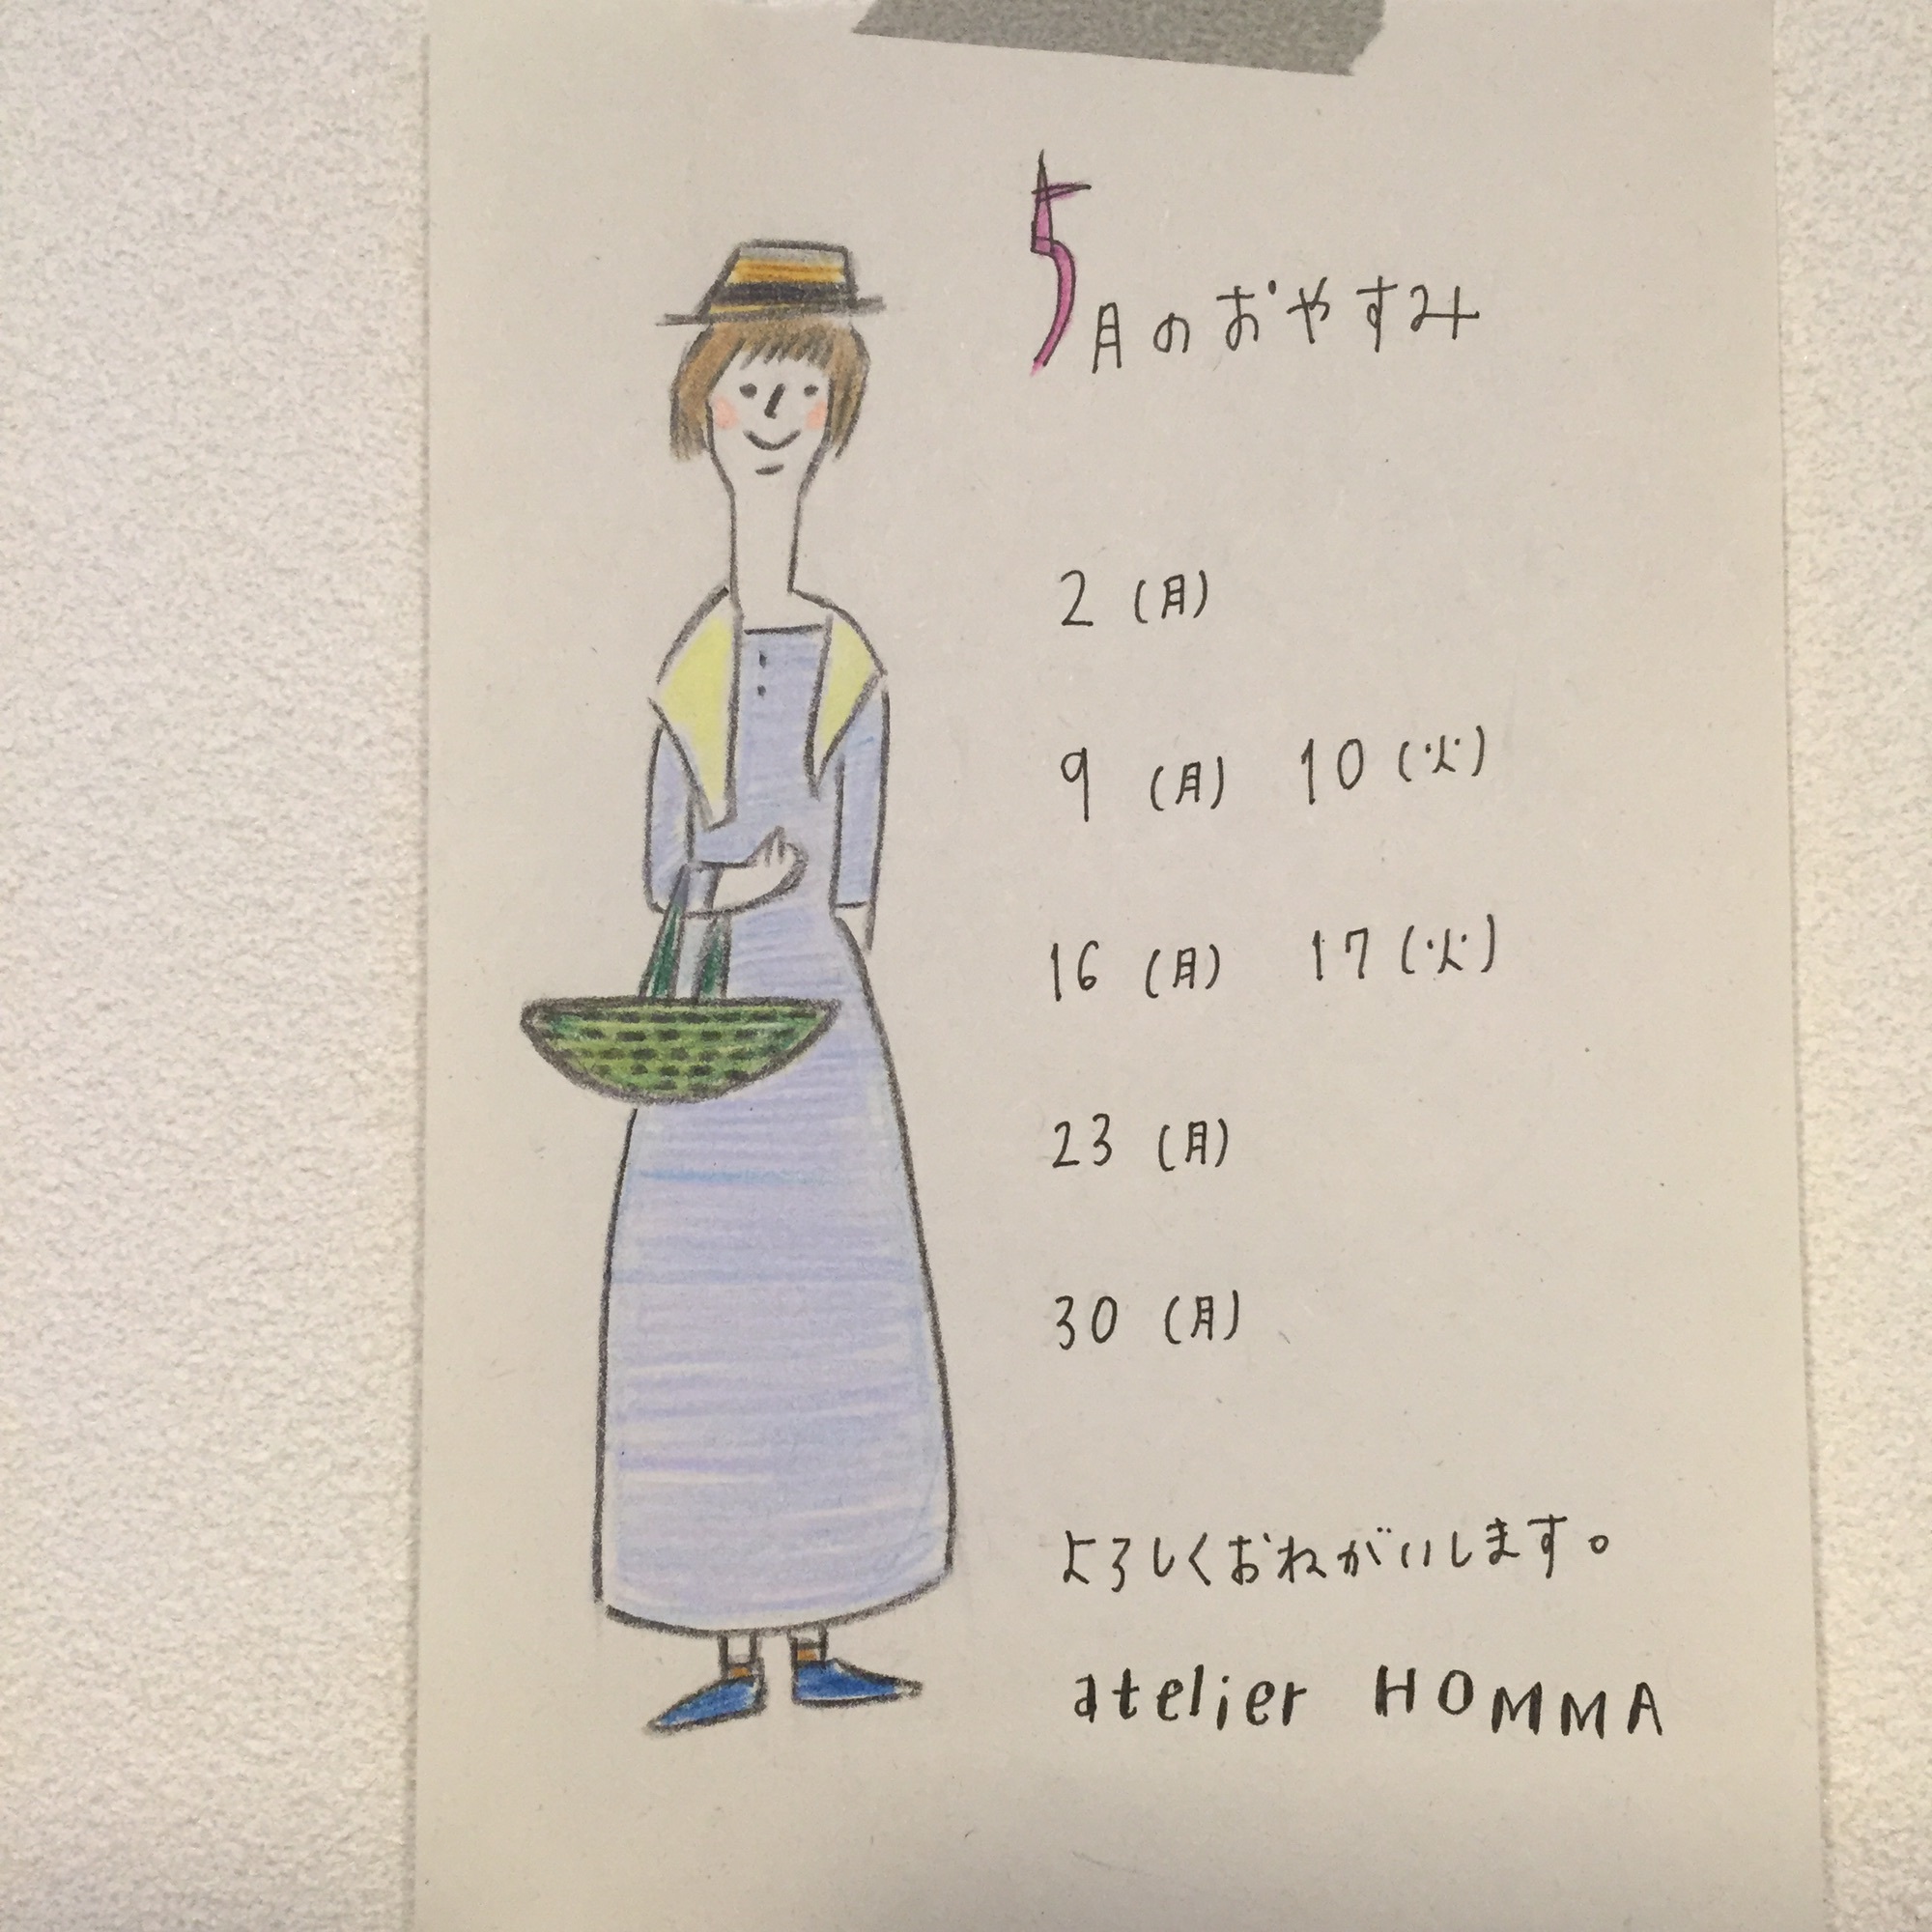 5月のおやすみ
2 (月)
9 (月) 10 (火)
16 (月) 17 (火)
23 (月)
30 (月)
よろしくおねがいします。
atelier HOMMA